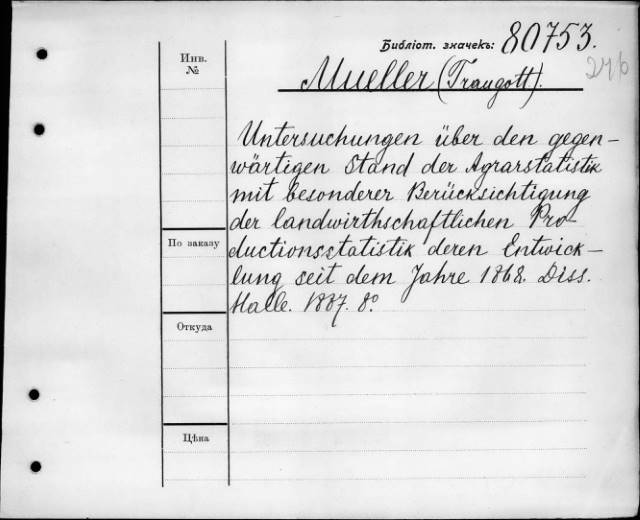 Библіот. значекъ: 80753.
246
Инв.
№
Mueller (Traugott).
Untersuchungen über den gegen-
wärtigen Stand der Agrarstatistik
mit besonderer Berücksichtigung
der landwirthschaftlichen Pro-
ductionsstatistik deren Entwick-
lung seit dem Jahre 1868. Diss.
Halle. 1887. 8°
По заказу
Откуда
Цѣна